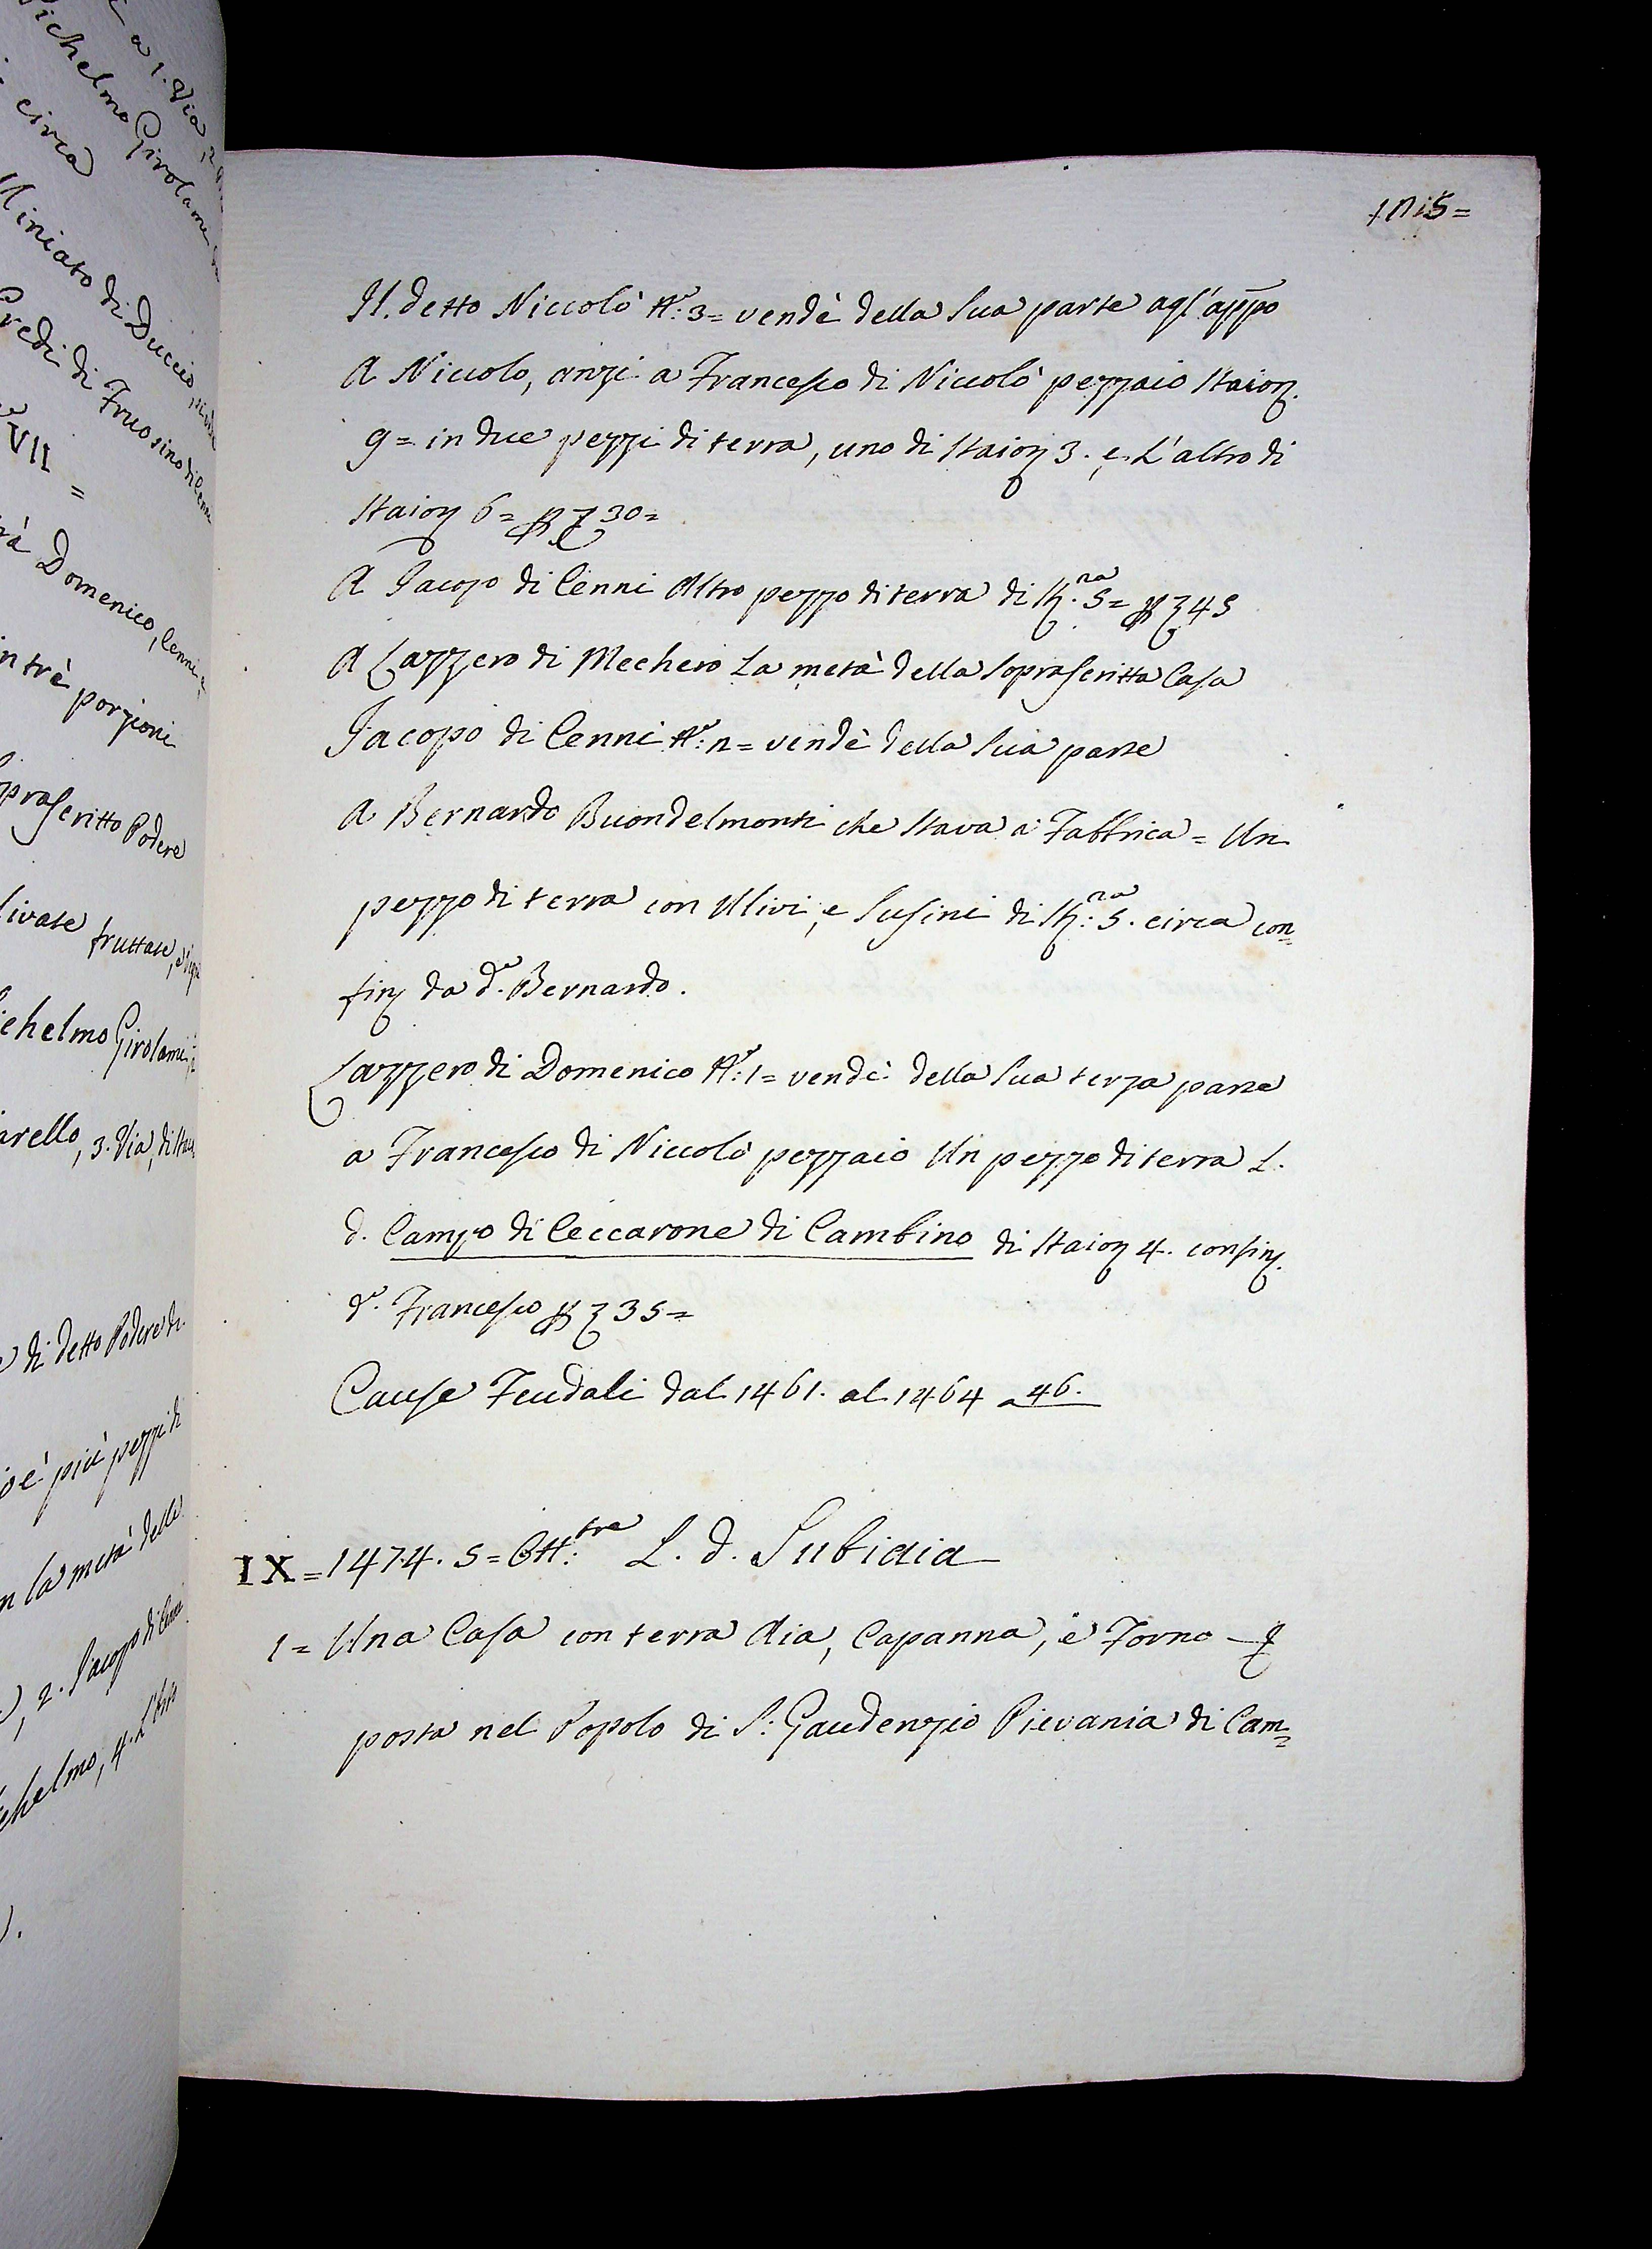 Il detto Niccolò Nº: 3 = vendè della sua parte agl'appo
A Niccolo, anzi a Francesco di Niccolò pezzaio staior.
9 = in due pezzi di terra, uno di staior 3. e L'altro di
staior 6 = p z 30 =
A Jacopo di Cenni Altro pezzo di terra di str. na 5 = p z 45
A Lazzero di Mechero La metà della soprascritta Casa
Jacopo di Cenni Nº: n = vendè della sua parte
A Bernardo Buondelmonti che stava a Fabbrica = Un
pezzo di terra con Ulivi, e susini di str: na 5. circa con=
fin da dº. Bernardo.
Lazzero di Domenico Nº: 1 = vendè della sua terza parte
a Francesco di Niccolò pezzaio Un pezzo di terra L.
d. Campo di Ceccarone di Cambino di staior 4. confin.
dº. Francesco p z 35 =
Cause Feudali dal 1461. al 1464 a 46.
IX = 1474. 5 = Ott: bre L. d. Subiaia
1 = Una Casa con terra Aia, Capanna, e Forno
posta nel Popolo di S: Gaudenzio Pievania di Cam=
Michelmo Girolami
circa
Miniato di Duccio
Eredi di Fruosino di Cenni
VII =
Domenico, Cenni, e
in trè porzioni
soprascritto Podere
fruttate
Michelmo Girolami
3. Via
di detto Podere di
cioè più pezzi di
la metà delle
2. Jacopo di Cenni